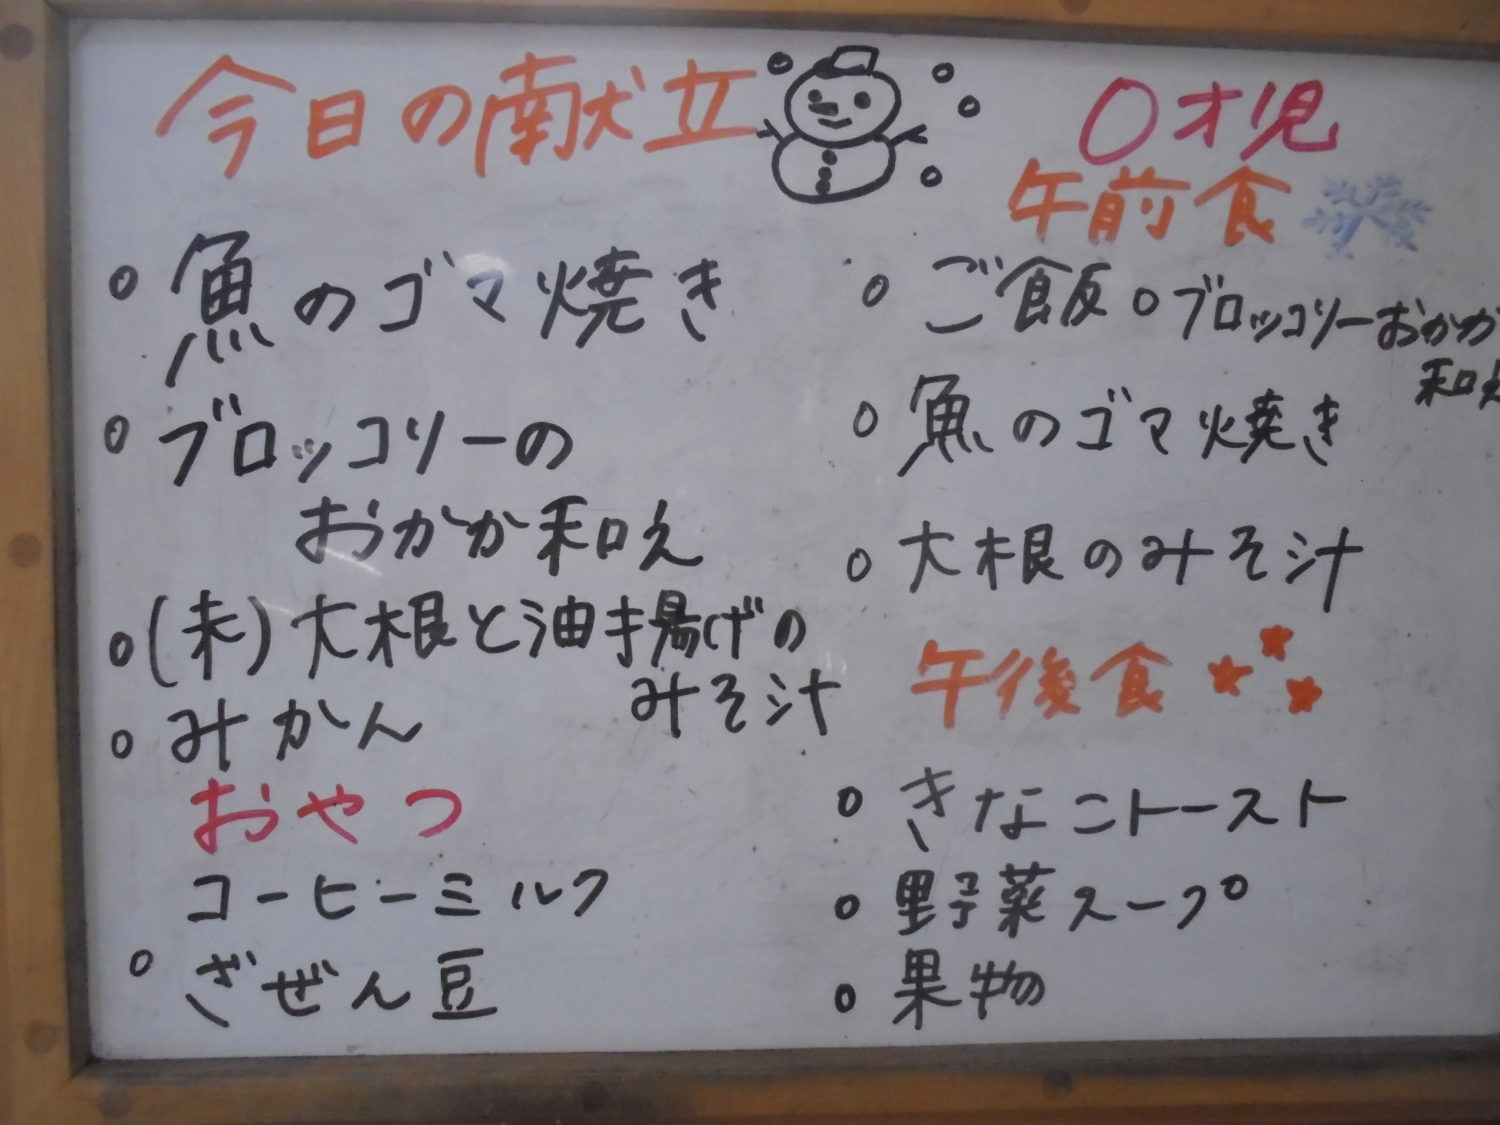 今日の献立
魚のゴマ焼き
ブロッコリーの
おかか和え
(未)大根と油揚げの
みそ汁
みかん
おやつ
コーヒーミルク
ざぜん豆
0才児
午前食
ご飯 ブロッコリーおかか
和え
魚のゴマ焼き
大根のみそ汁
午後食
きなこトースト
野菜スープ
果物